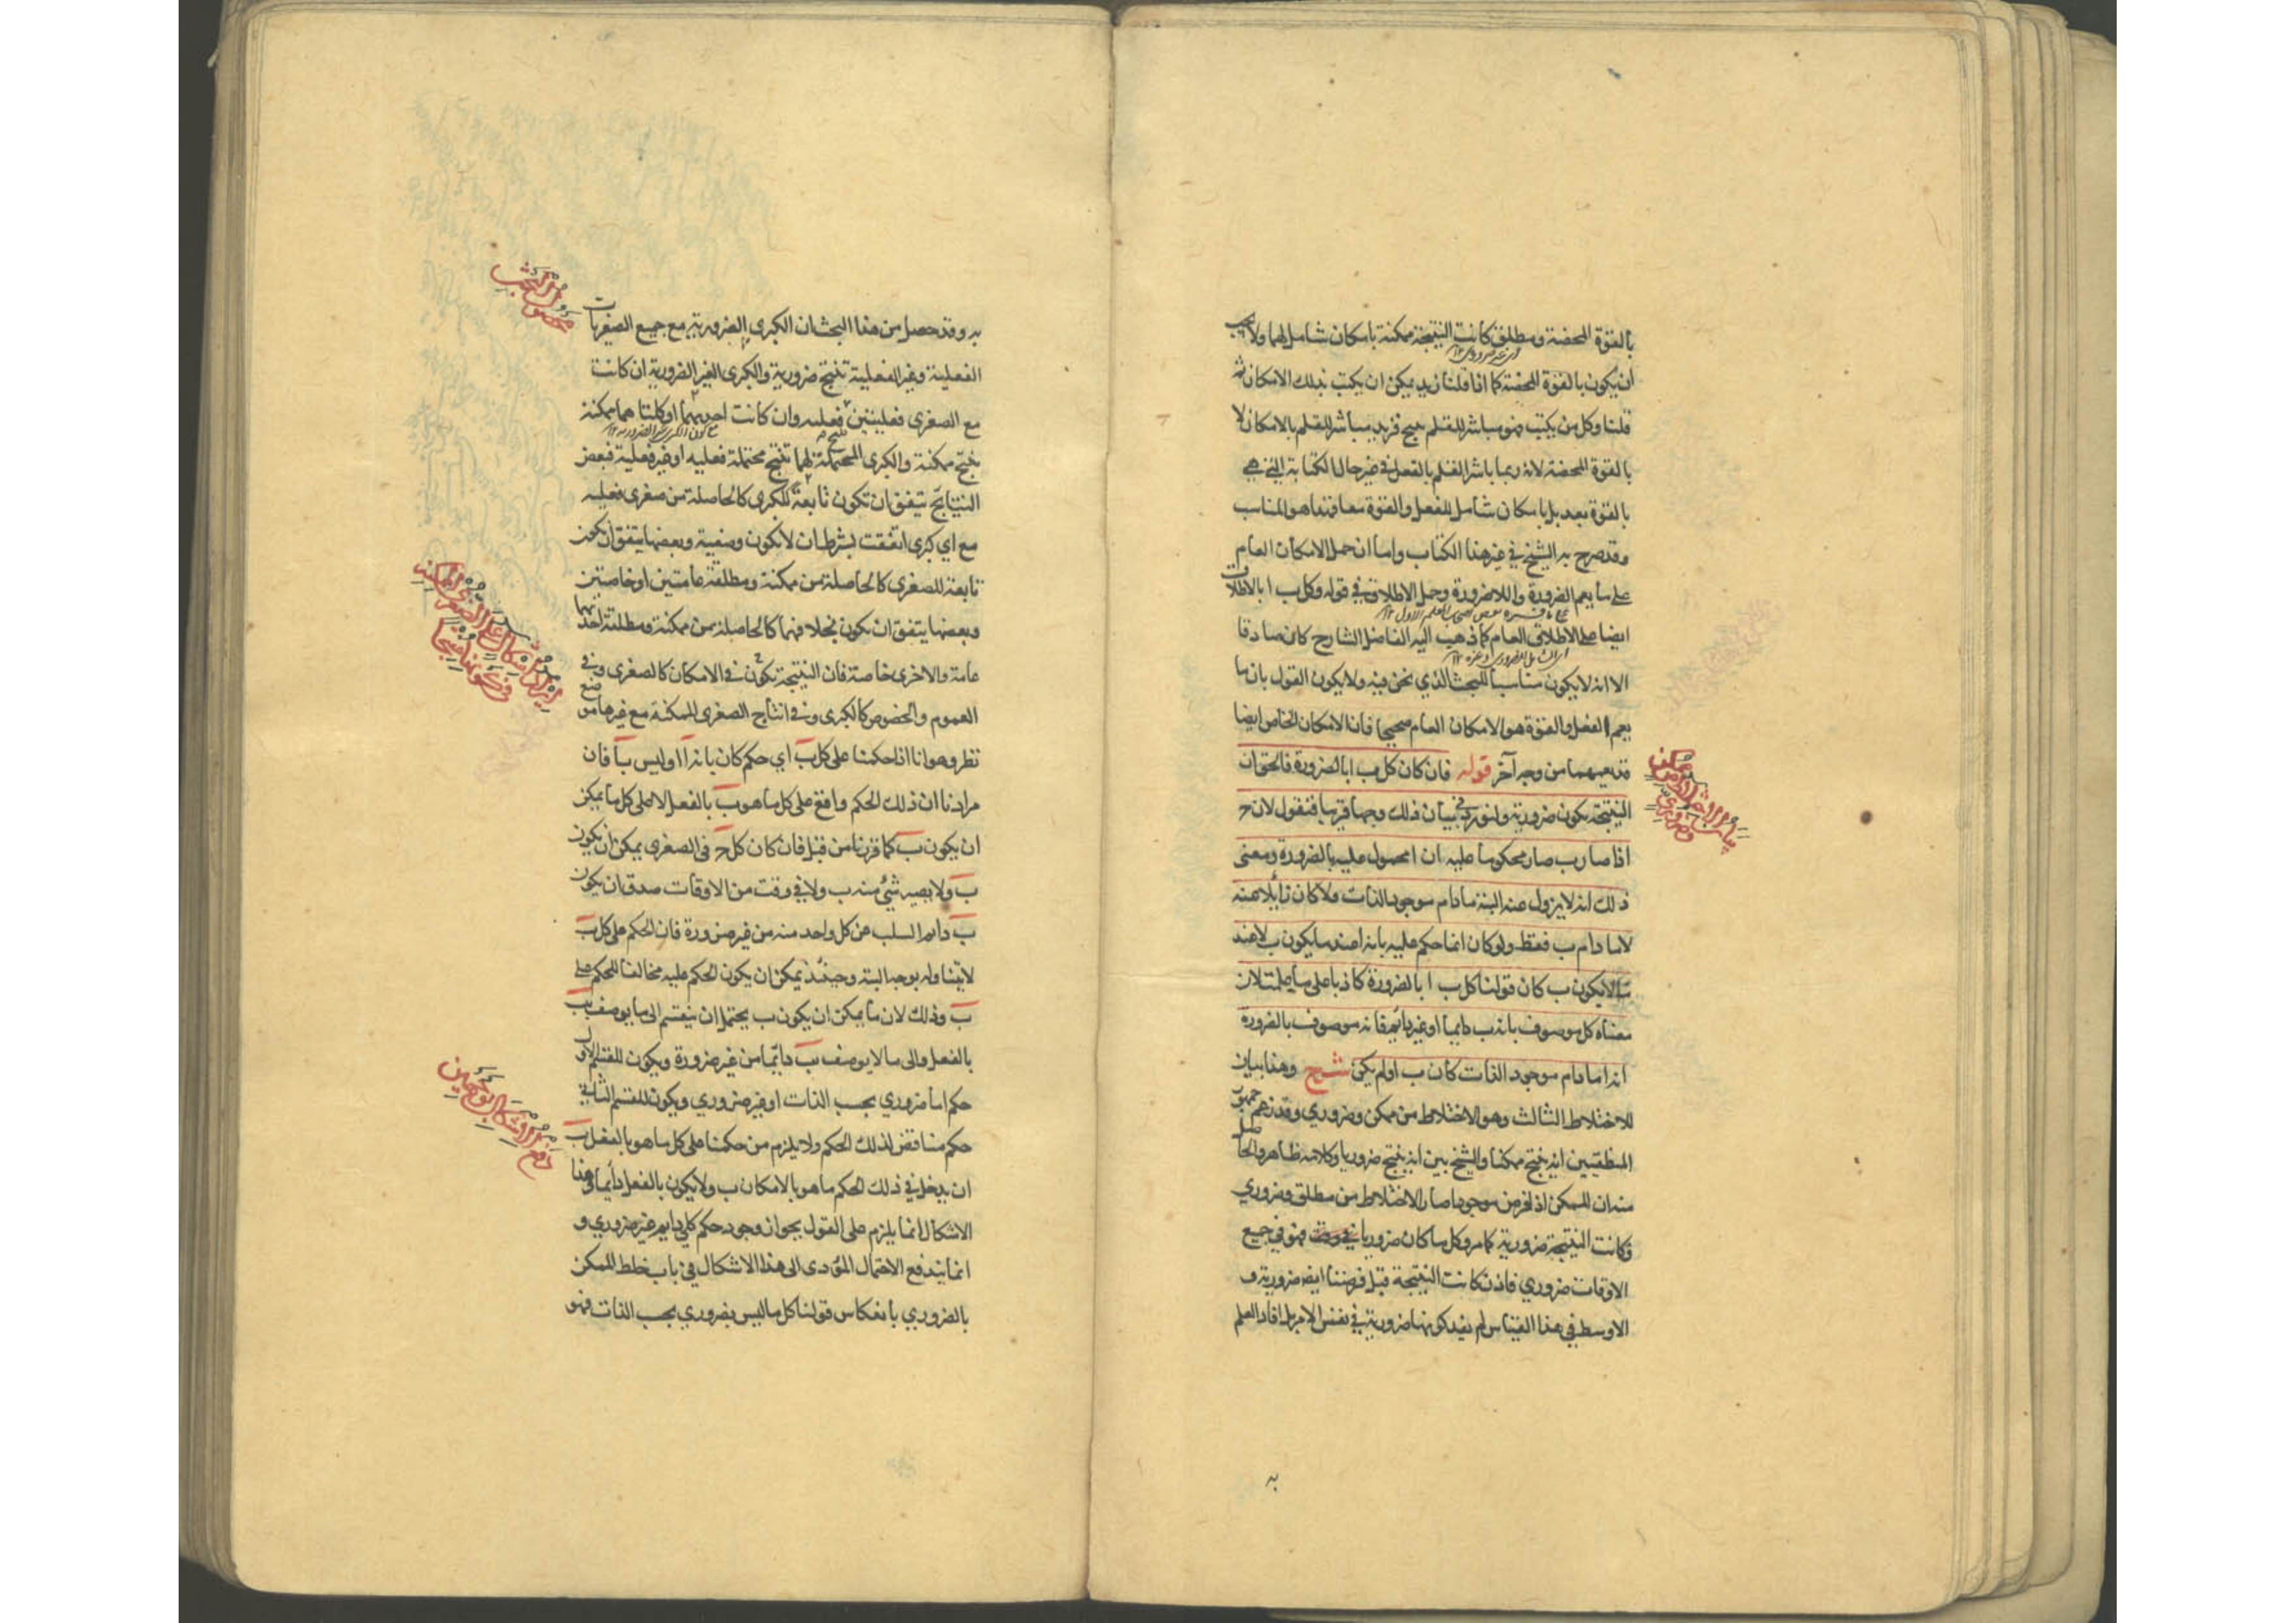 بالقوة المحضة ومطلق كانت النتيجة ممكنة بامكان شامل لهما ولا يجب
اى غير ضرورى ١٢
أن يكون بالقوة المحضة كما اذا قلنا زيد يمكن ان يكتب بذلك الامكان ثم
قلنا وكل من يكتب فهو مباشر للقلم ينتج فزيد مباشر للقلم بالامكان لا
بالقوة المحضة لانه ربما باشر القلم بالفعل في غير حال الكتابة التي هي
بالقوة بعد بل بامكان شامل للفعل والقوة معا فهذا هو المناسب
وقد صرح به الشيخ في غير هذا الكتاب واما ان حمل الامكان العام
على ما يعم الضرورة واللاضرورة وحمل الاطلاق في قوله وكل ب ا بالاطلاق
ايضا على الاطلاق العام كما ذهب اليه الفاضل الشارح كان صادقا
اى الشامل للضرورى وغيره ١٢
الا انه لا يكون مناسبا للبحث الذي نحن فيه ولا يكون القول بان ما
يعم الفعل والقوة هو الامكان العام صحيحا فان الامكان الخاص ايضا
قد يعمهما من وجه آخر قوله فان كان كل ب ا بالضرورة فالحق ان
النتيجة يكون ضرورية ولنورد في بيان ذلك وجها قريبا فنقول لان ج
اذا صار ب صار محكوما عليه ان ا محمول عليه بالضرورة ومعنى
ذلك انه لا يزول عنه البتة ما دام موجود الذات ولا كان زائلا عنه
لا ما دام ب فقط ولو كان انما حكم عليه بانه ا عند ما يكون ب لا عند
ما لا يكون ب كان قولنا كل ب ا بالضرورة كاذبا على ما علمت لان
معناه كل موصوف بانه ب دايما او غير دائم فانه موصوف بالضرورة
انه ا ما دام موجود الذات كان ب او لم يكن شرح وهذا بيان
للاختلاط الثالث وهو الاختلاط من ممكن وضروري وقد زعم جمهور
المنطقيين انه ينتج ممكنا والشيخ بين انه ينتج ضروريا وكلامه ظاهر والحاصل
منه ان الممكن اذا فرض موجودا صار الاختلاط من مطلق وضروري
وكانت النتيجة ضرورية كما مر وكل ما كان ضروريا في وقت فهو في جميع
الاوقات ضروري فاذن كانت النتيجة قبل فرضنا ايضا ضرورية و
الاوسط في هذا القياس لم يفد كونها ضرورية في نفس الامر بل افاد العلم
به
به وقد حصل من هذا البحث ان الكبرى الضرورية مع جميع الصغريات
الفعلية وغير الفعلية تنتج ضرورية والكبرى الغير الضرورية ان كانت
مع الصغرى فعليتين فعلية وان كانت احديهما او كلتا هما ممكنة
مع كون الكبرى غير الضرورية ١٢
ينتج ممكنة والكبرى المحتملة لهما تنتج محتملة فعليه او غير فعلية فبعض
النتايج يتفق ان تكون تابعة للكبرى كالحاصلة من صغرى فعليه
مع اي كبرى اتفقت بشرط ان لا يكون وصفية وبعضها يتفق ان يكون
تابعة للصغرى كالحاصلة من ممكنة ومطلقة عامتين او خاصتين
وبعضها يتفق ان يكون بخلافهما كالحاصلة من ممكنة ومطلقة احديهما
عامة والاخرى خاصة فان النتيجة تكون في الامكان كالصغرى وفي
العموم والخصوص كالكبرى وفي انتاج الصغرى الممكنة مع غيرها موضع
نظر وهو انا اذا حكمنا على كل ب اي حكم كان بانه ا او ليس با فان
مرادنا ان ذلك الحكم واقع على كل ما هو ب بالفعل لا على كل ما يمكن
ان يكون ب كما قررنا من قبل فان كان كل ج في الصغرى يمكن ان يكون
ب ولا يصير شئ منه ب ولا في وقت من الاوقات صدق ان يكون
ب دائم السلب عن كل واحد منه من غير ضرورة فان الحكم على كل ب
لا يتناوله بوجه البتة وحينئذ يمكن ان يكون الحكم عليه مخالفا للحكم على
ب وذلك لان ما يمكن ان يكون ب يحتمل ان ينقسم الى ما يوصف بب
بالفعل والى ما لا يوصف بب دايما من غير ضرورة ويكون للقسم الاول
حكم اما ضروري بحسب الذات او غير ضروري ويكون للقسم الثاني
حكم مناقض لذلك الحكم ولا يلزم من حكمنا على كل ما هو بالفعل ب
ان يدخل في ذلك الحكم ما هو بالامكان ب ولا يكون بالفعل دائما وهذا
الاشكال انما يلزم على القول بجواز وجود حكم كلي دايم غير ضروري و
انما يندفع الاحتمال المؤدى الى هذا الاشكال في باب خلط الممكن
بالضروري بانعكاس قولنا كل ما ليس بضروري بحسب الذات فهو